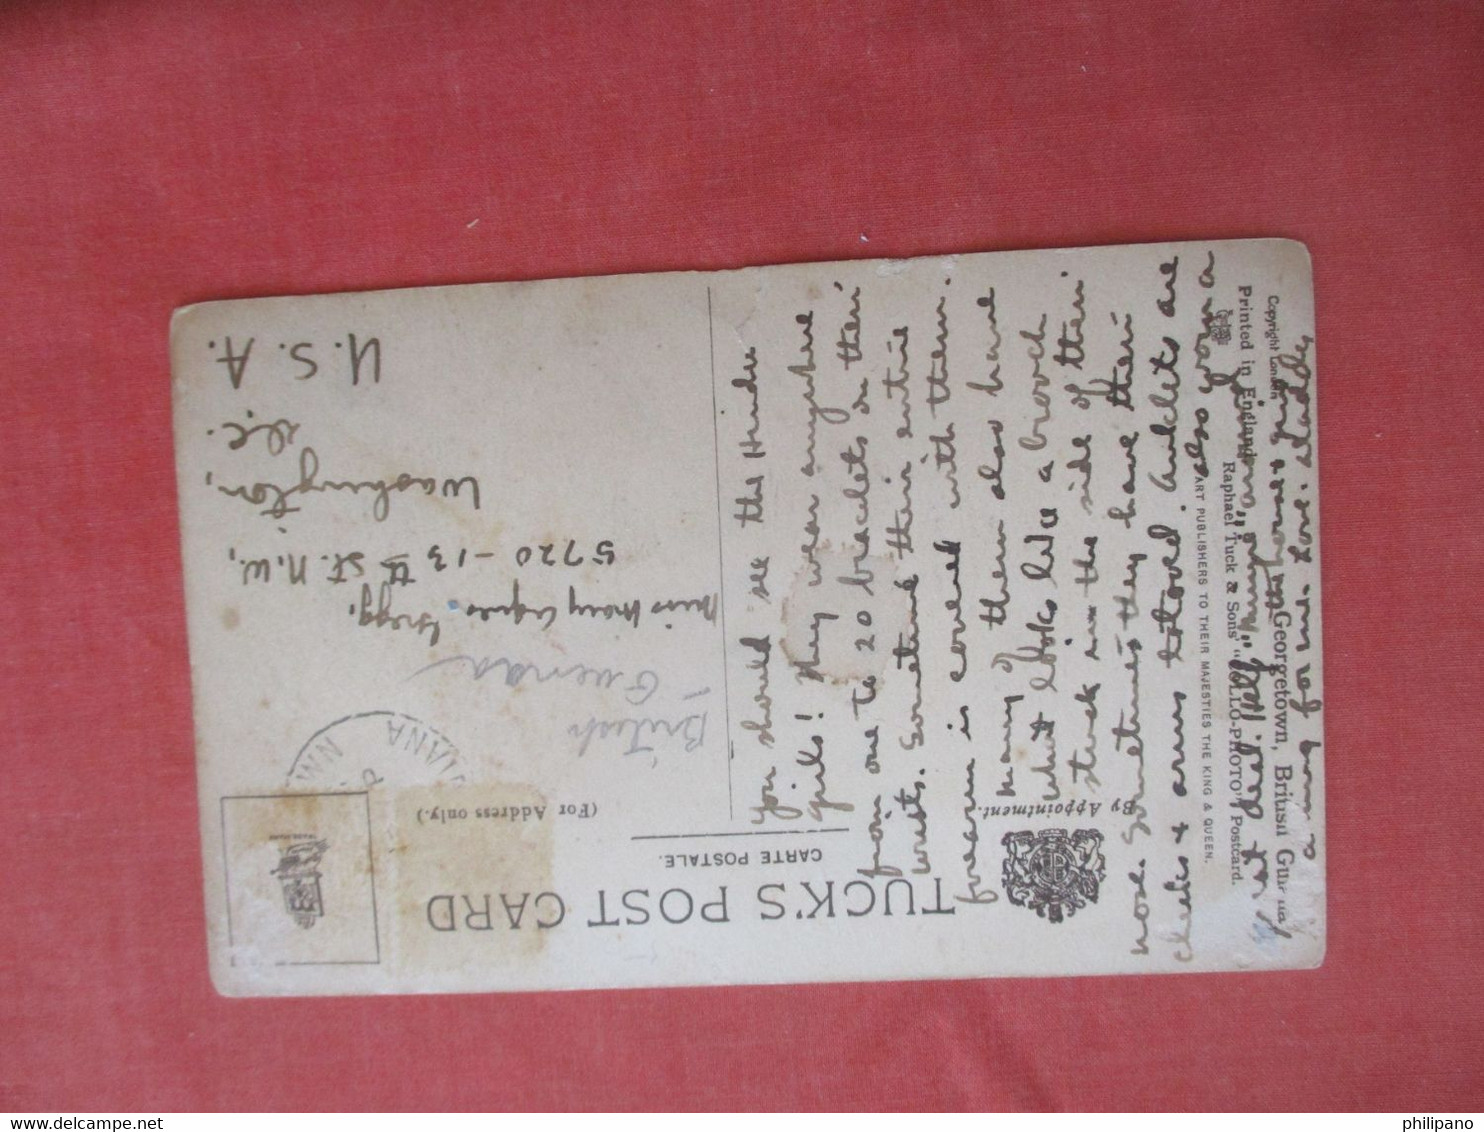 TUCK'S POST CARD
CARTE POSTALE.
(For Address only.)
By Appointment.
British
Guenas
Miss Mary Agnes
Gregg.
5720 - 13th St. N.W.,
Washington,
D.C.
U. S. A.
You should see the Hindu
girls! They wear anywhere
from one to 20 bracelets on their
wrists. Sometime their entire
forearm is covered with them.
Many of them also have
what looks like a brooch
stuck in the side of their
nose. Sometimes they have their
cheeks & arms tatooed. Anklets are
also worn
a
Love.
ART PUBLISHERS TO THEIR MAJESTIES THE KING & QUEEN.
Raphael Tuck & Sons' "COLLO-PHOTO" Postcard.
Printed in England.
Georgetown, British Guiana
Copyright London
philipano